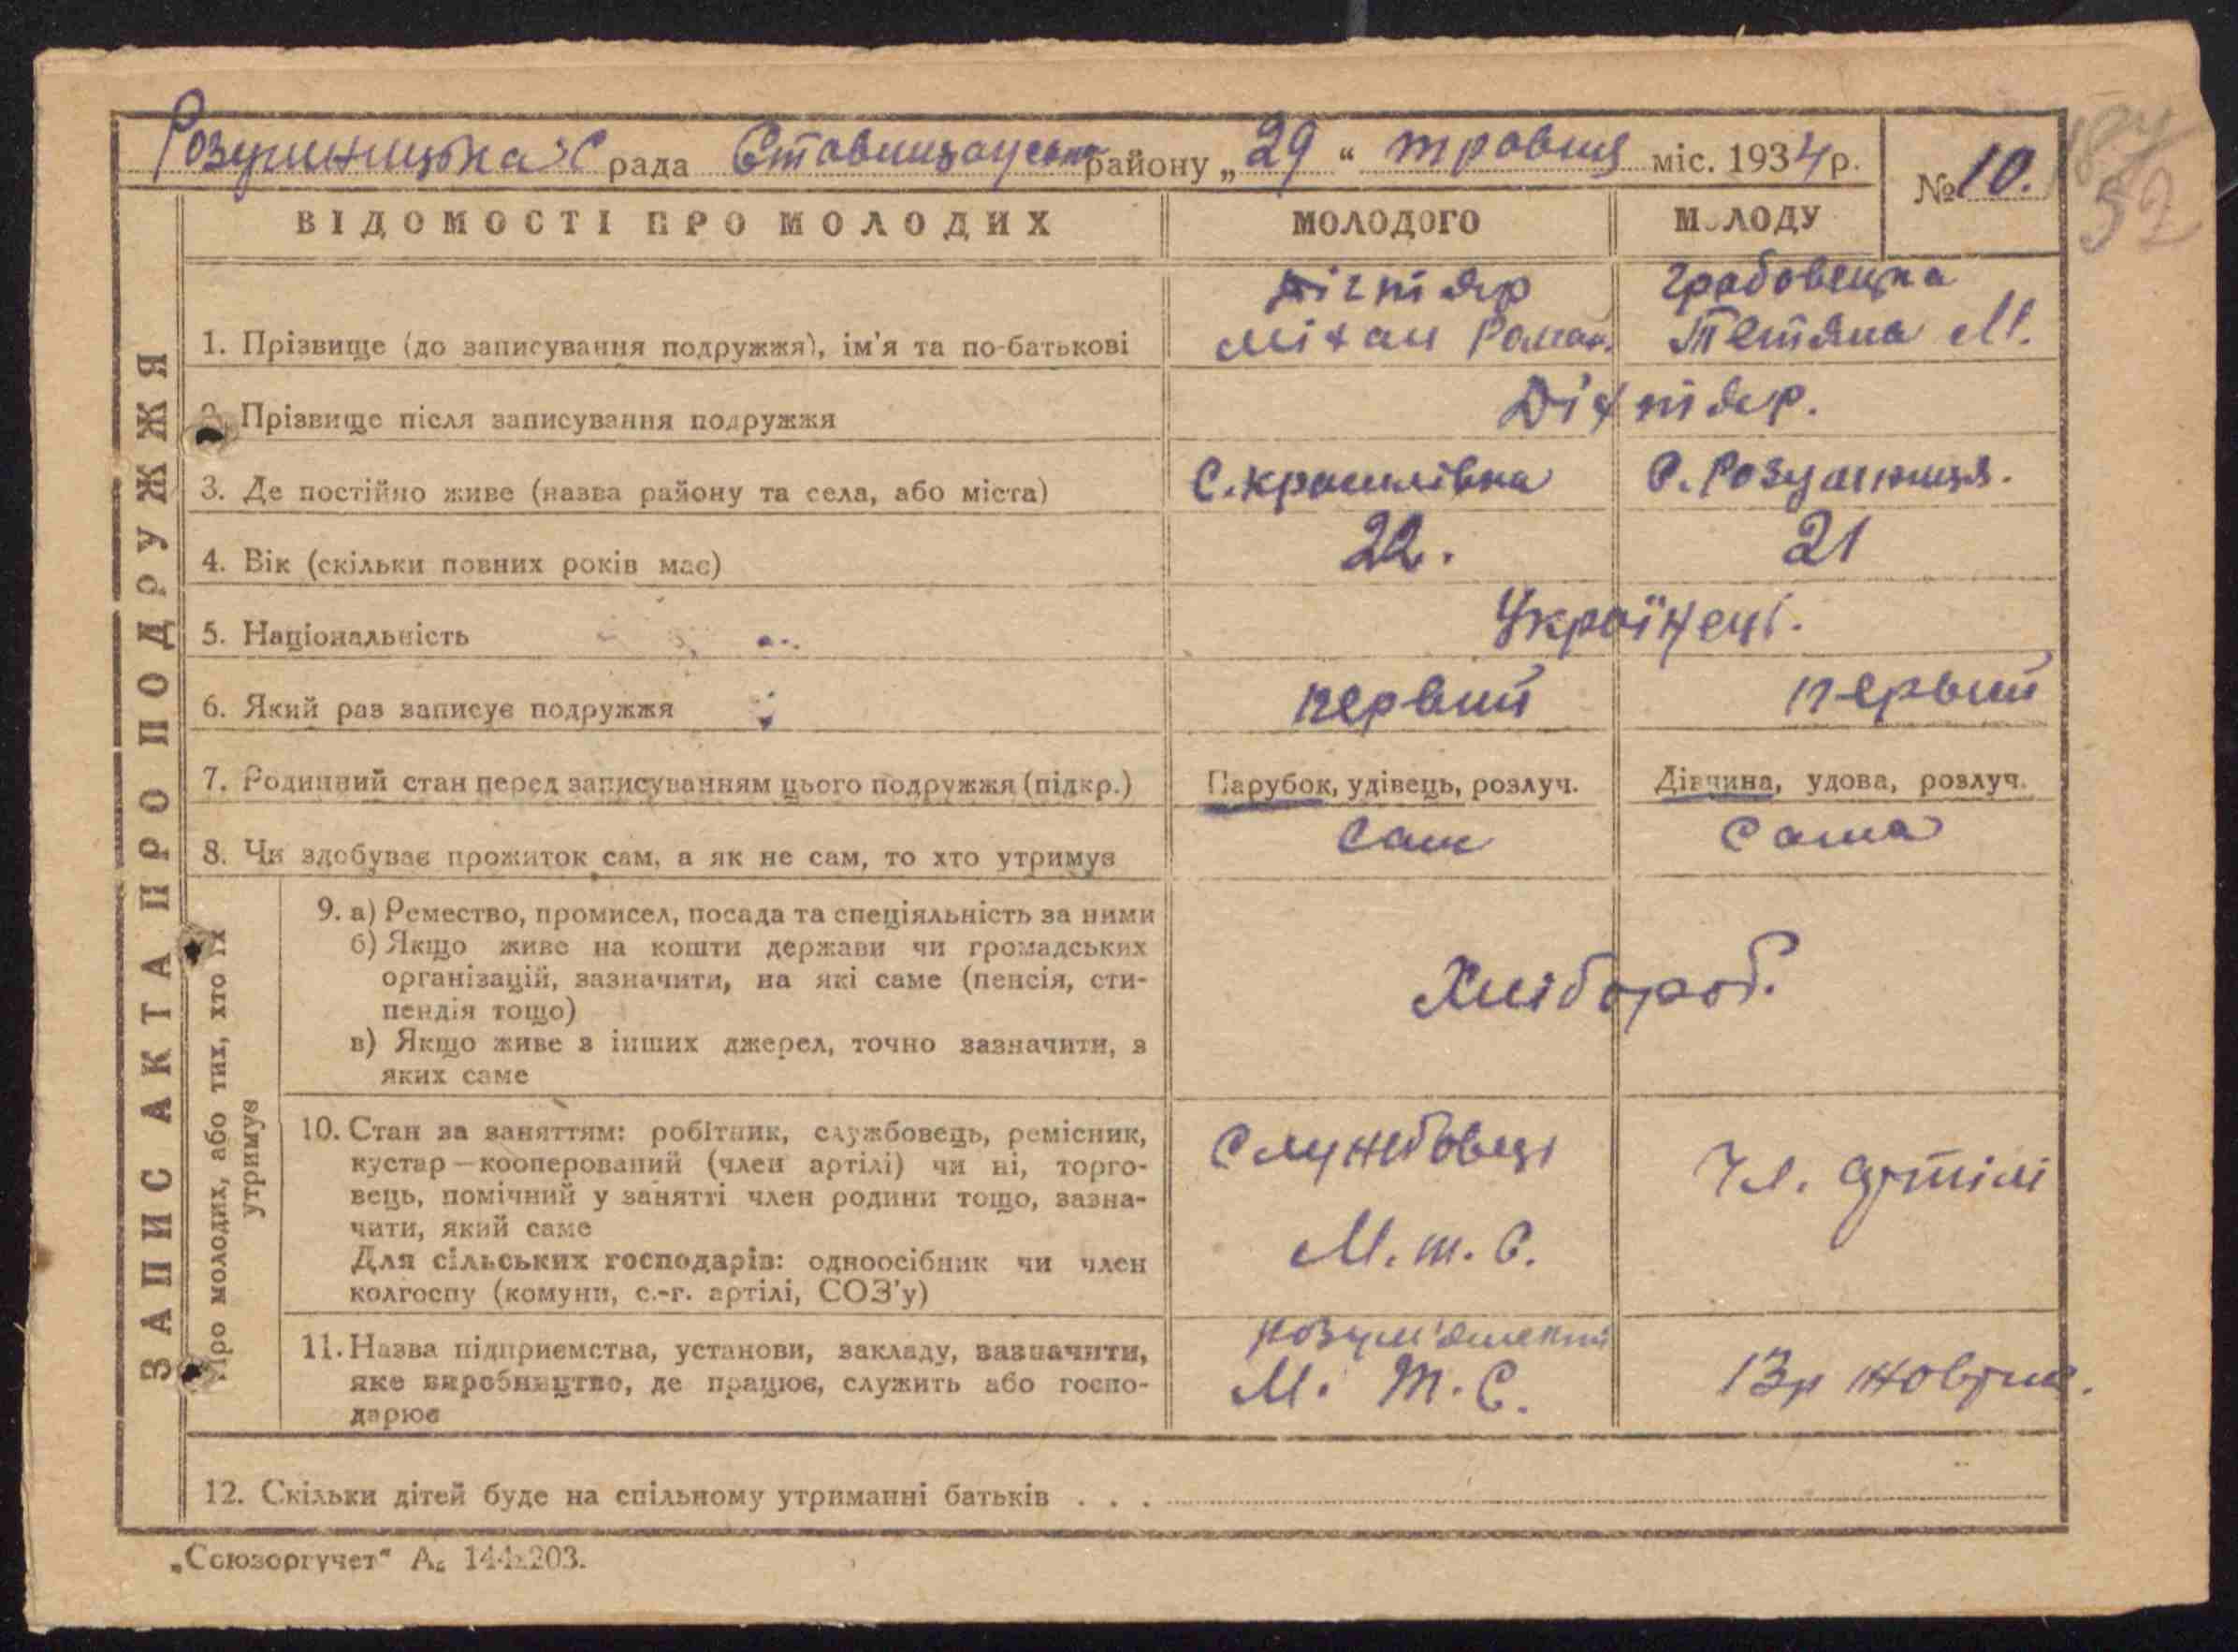 Розумницька С рада Ставищанського району „29“ травня міс. 1934 р. № 10.
52
ЗАПИС АКТА ПРО ПОДРУЖЖЯ
ВІДОМОСТІ ПРО МОЛОДИХ МОЛОДОГО МОЛОДУ
Дігтяр Грабовецка
1. Прізвище (до записування подружжя), ім'я та по-батькові Міхал Роман. Тетяна М.
2. Прізвище після записування подружжя Діхтяр.
3. Де постійно живе (назва району та села, або міста) С. Крашлівка С. Розумниця.
4. Вік (скільки повних років має) 22. 21
5. Національність Українеці.
6. Який раз записує подружжя первий первий
7. Родинний стан перед записуванням цього подружжя (підкр.) Парубок, удівець, розлуч. Дівчина, удова, розлуч.
8. Чи здобуває прожиток сам, а як не сам, то хто утримує Сам Сама
Про молодих, або тих, хто їх
утримує
9. а) Ремество, промисел, посада та спеціяльність за ними
б) Якщо живе на кошти держави чи громадських
організацій, зазначити, на які саме (пенсія, сти-
пендія тощо)
Хлібороб.
в) Якщо живе з інших джерел, точно зазначити, з
яких саме
10. Стан за заняттям: робітник, службовець, ремісник,
кустар—кооперований (член артілі) чи ні, торго-
вець, помічний у занятті член родини тощо, зазна-
чити, який саме
Для сільських господарів: одноосібник чи член
колгоспу (комуни, с.-г. артілі, СОЗ'у)
Службовец М. т. С. Чл. артілі
11. Назва підприємства, установи, закладу, зазначити,
яке виробництво, де працює, служить або госпо-
дарює
М. Т. С. 13р жовтня.
12. Скільки дітей буде на спільному утриманні батьків . . .
„Союзоргучет“